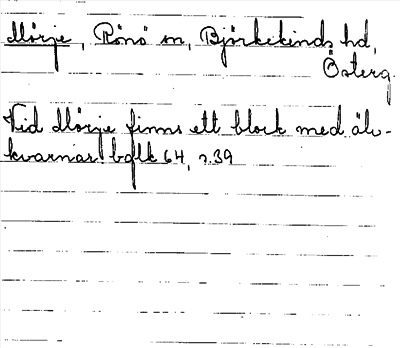 Mörje, Rönö sn, Björkekinds hd,
Österg.
Vid Mörje finns ett block med älv-
kvarnar. 64, s.39